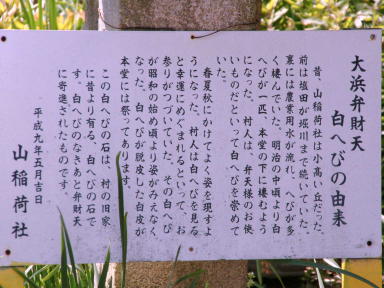 大浜弁財天
白へびの由来
昔、山稲荷社は小高い丘だった。
前は塩田が堀川まで続いていた。
裏には農業用水が流れ、へびが多
く棲んでいた。明治の中頃より白
へびが一匹、本堂の下に棲むよう
になった。村人は、弁天様のお使
いものだといって白へびを崇めて
いた。
春夏秋にかけてよく姿を現すよ
うになった。村人は白へびを見る
と幸運にめぐまれるといって、お
参りがつづいていた。その白へび
が昭和の始め頃より姿がみえなく
なった。白へびが脱皮した白皮が
本堂には祭ってあります。
この白へびの石は、村の旧家
に昔より有る、白へびの石で
す。白へびのなきあと弁財天
に寄進されたものです。
平成九年五月吉日
山稲荷社